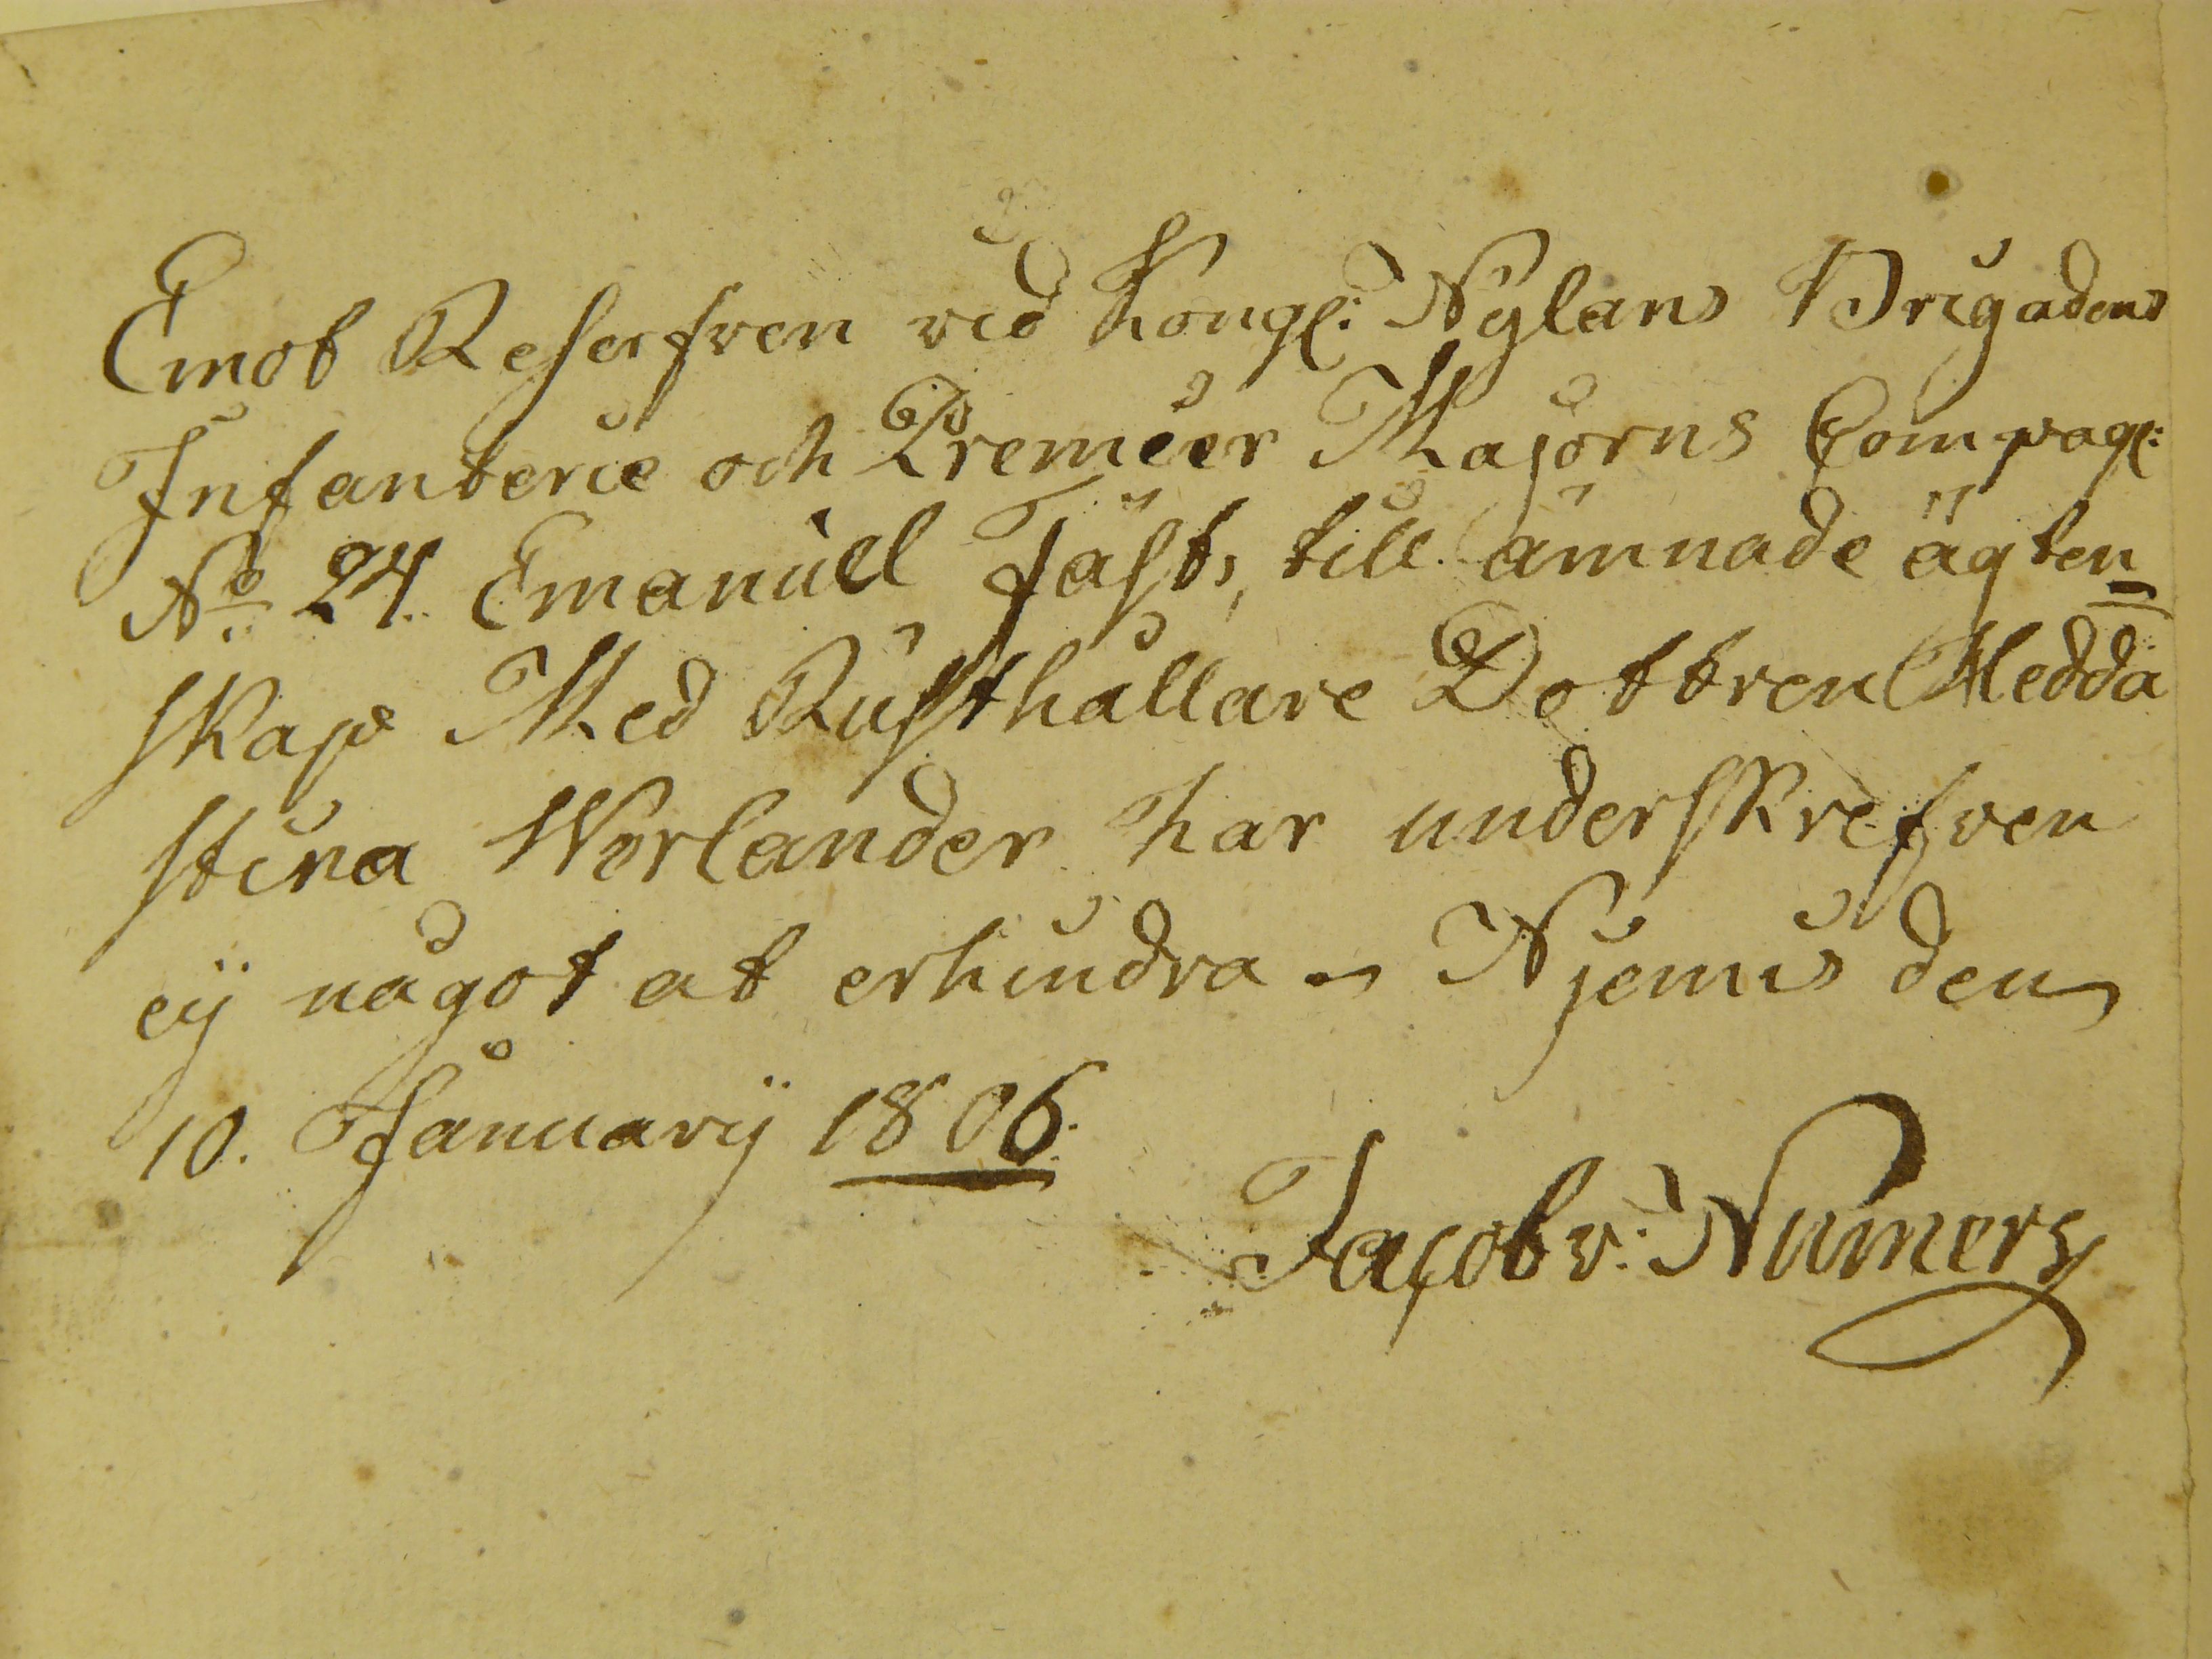 Emot Reserfven vid Kongl: Nylans Brigadens
Infanterie och Premier Majorns Compagl:
No 24. Emanuel Fäst, till ämnade ägten=
skap Med Rusthållare Dottren Hedda
stina Werlander har underskrefven
eÿ något at erhindra – Njemis den
10. Januarÿ 1806.
Jacob v: Numers